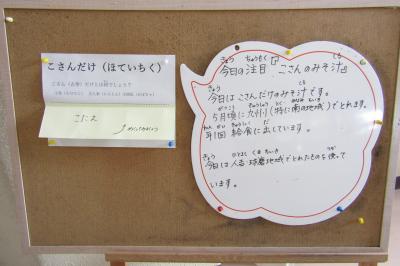 こさんだけ（ほていちく）
こたえ
今日の注目『こさんのみそ汁』
今日はこさんだけのみそ汁です。
5月頃に九州（特に南の地域）でとれます。
年1回 給食に出しています。
今日は人吉球磨地域でとれたものを使って
います。